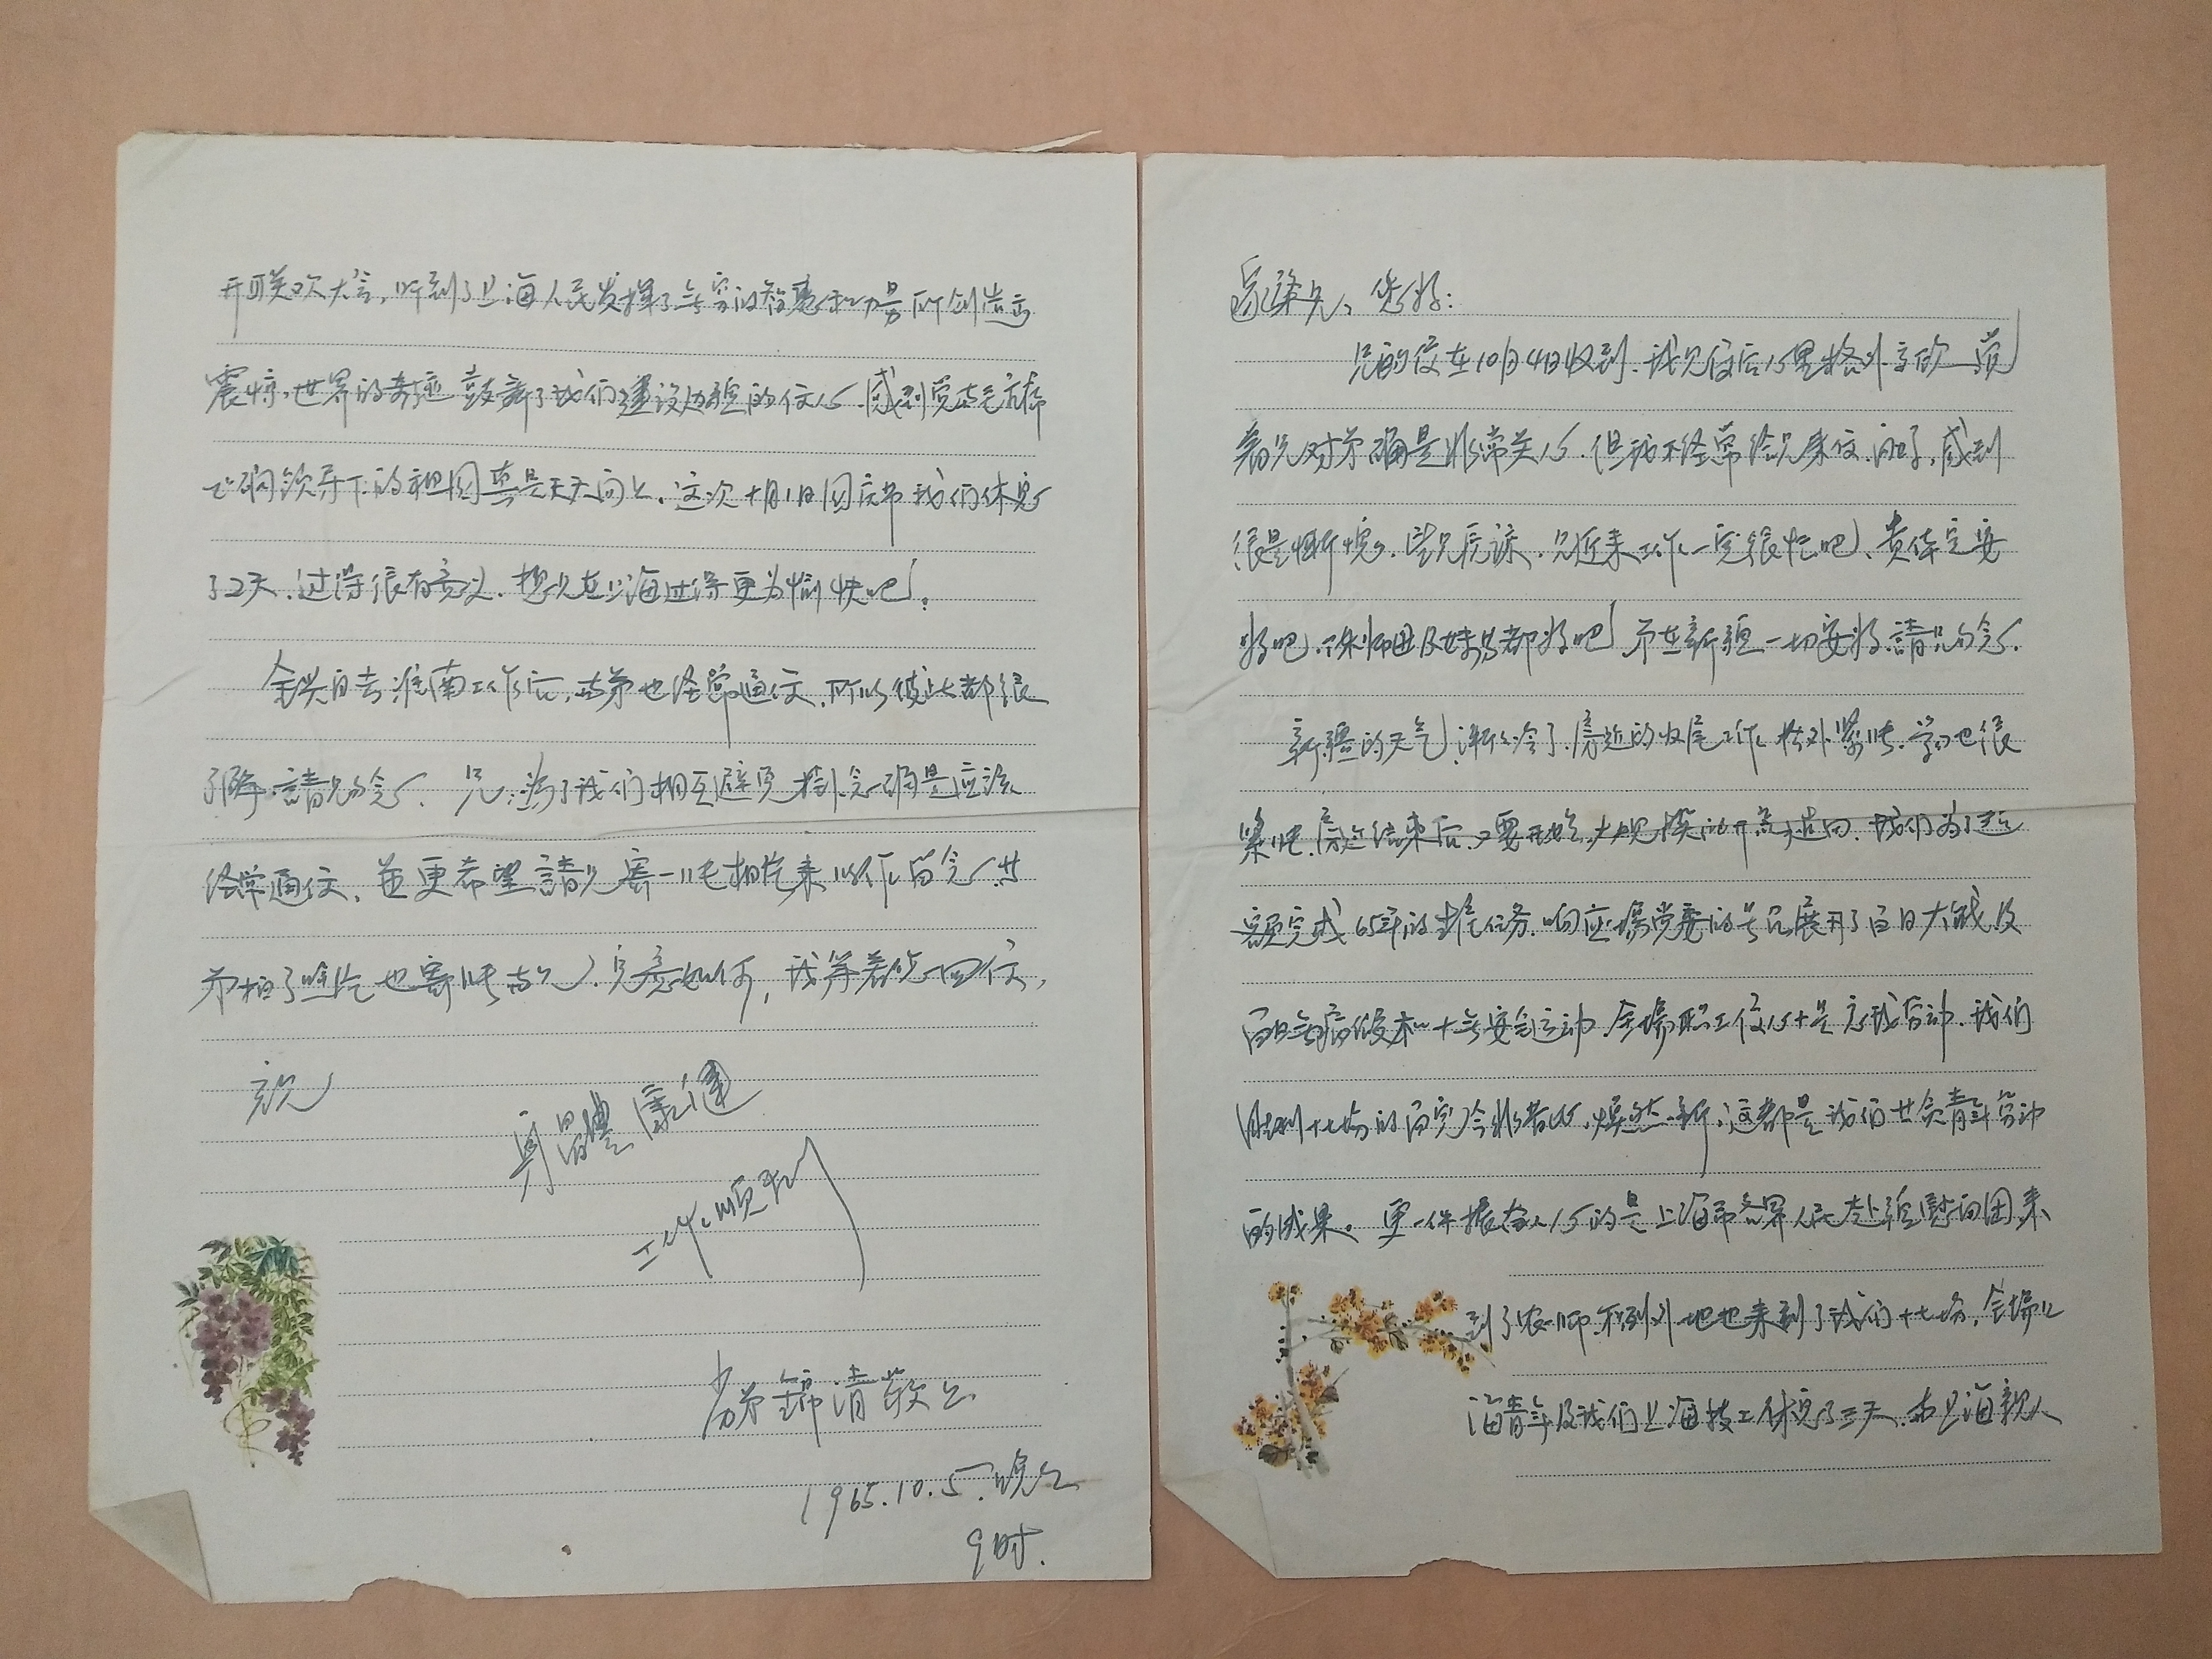 兄、您好:
兄的信在10月4日收到.我见信后心里格外高欣.
兄对弟确是非常关心.但我不经常给兄来信.问了,感到
很是惭愧.望兄原谅.兄近来工作一定很忙吧.贵体定安
好吧.师母及妹弟都好吧!弟在新疆一切安好.請兄勿念.
新疆的天气渐々冷了.最近的收尾工作格外紧张.学习也很
紧张.结束后.又要开始大规模的开荒造田.我们为了超
额完成65年的生产任务.响应場党委的号召展开了百日大战及
百日无病假和十无安全运动.全場职工信心十足立我劳动.我们
胜利十七場的面貌今非昔比,焕然一新,这都是我们廿余青年劳动
的成果。更一件振奋人心的是上海市各界人民赴疆慰问团来
到了农一师.不到外地也来到了我们十七場.全場上
海青年及我们上海技工休息了三天.与上海親人
开联欢大会,听到了上海人民发揮了无穷的智慧和力量所创造出
震惊世界的奇迹鼓舞了我们建设边疆的信心.感到党与毛主席
正确领导下的祖国真是天天向上.这次十月1日国庆节我们休息
了2天.过得很有意义.想兄在上海过得更为愉快吧!
全兴自去淮南工作后,与弟也经常通信.所以彼此都很
了解.請兄勿念.兄:为了我们相互避免掛念确是应该
经常通信.並更希望請兄寄一张相片来以作留念.廿
弟拍了照片也寄张与兄.兄意如何,我等着兄回信,
祝
身體康健
工作順利
劣弟錦清敬上
1965.10.5.晚上
9時.